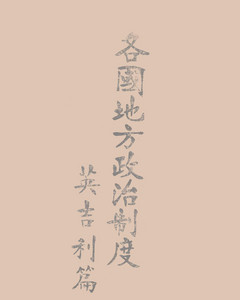 各國地方政治制度
英吉利篇